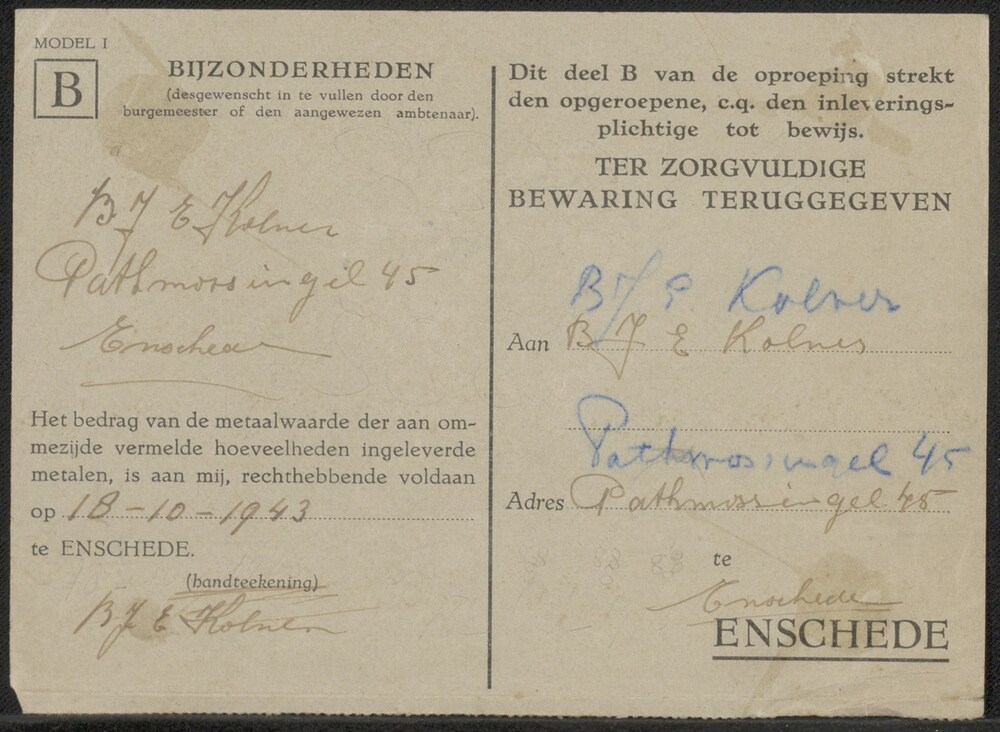 MODEL I
B
BIJZONDERHEDEN
(desgewenscht in te vullen door den
burgemeester of den aangewezen ambtenaar).
B J E Kolner
Pathmossingel 45
Enschede
Het bedrag van de metaalwaarde der aan om-
mezijde vermelde hoeveelheden ingeleverde
metalen, is aan mij, rechthebbende voldaan
op 18-10-1943
te ENSCHEDE.
(handteekening)
B J E Kolner
Dit deel B van de oproeping strekt
den opgeroepene, c.q. den inleverings-
plichtige tot bewijs.
TER ZORGVULDIGE
BEWARING TERUGGEGEVEN
B J E Kolner
Aan B J E Kolner
Pathmossingel 45
Adres Pathmossingel 45
te
Enschede
ENSCHEDE